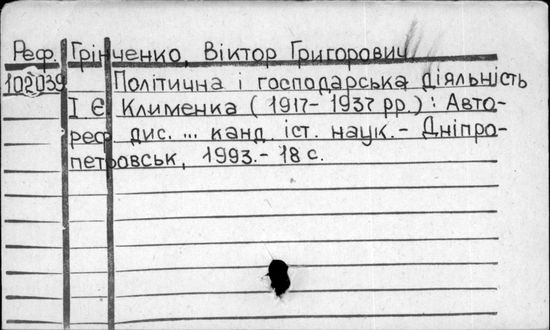 Реф. Грінченко, Віктор Григорович.
102039 Політична і господарська діяльність
І Є Клименка (1917-1937 рр.): Авто-
реф дис. ... канд іст. наук. - Дніпро-
петровськ, 1993. - 18 с.